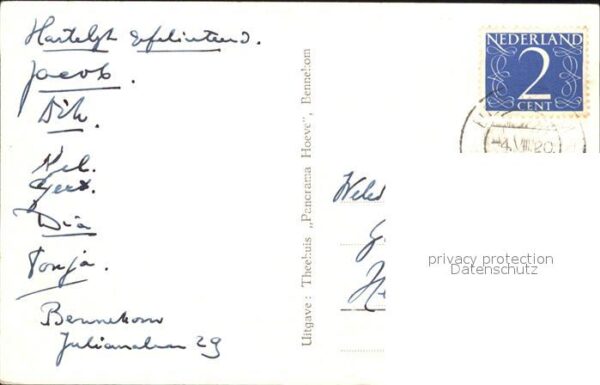 Hartelijk gefeliciteerd.
Jacob.
Dik.
Nel.
Gert.
Dia
Tonja.
Bennekom
Julianalaan 29
Uitgave: Theehuis „Panorama Hoeve", Bennekom
NEDERLAND
2
CENT
-4.VII.20.
privacy protection
Datenschutz